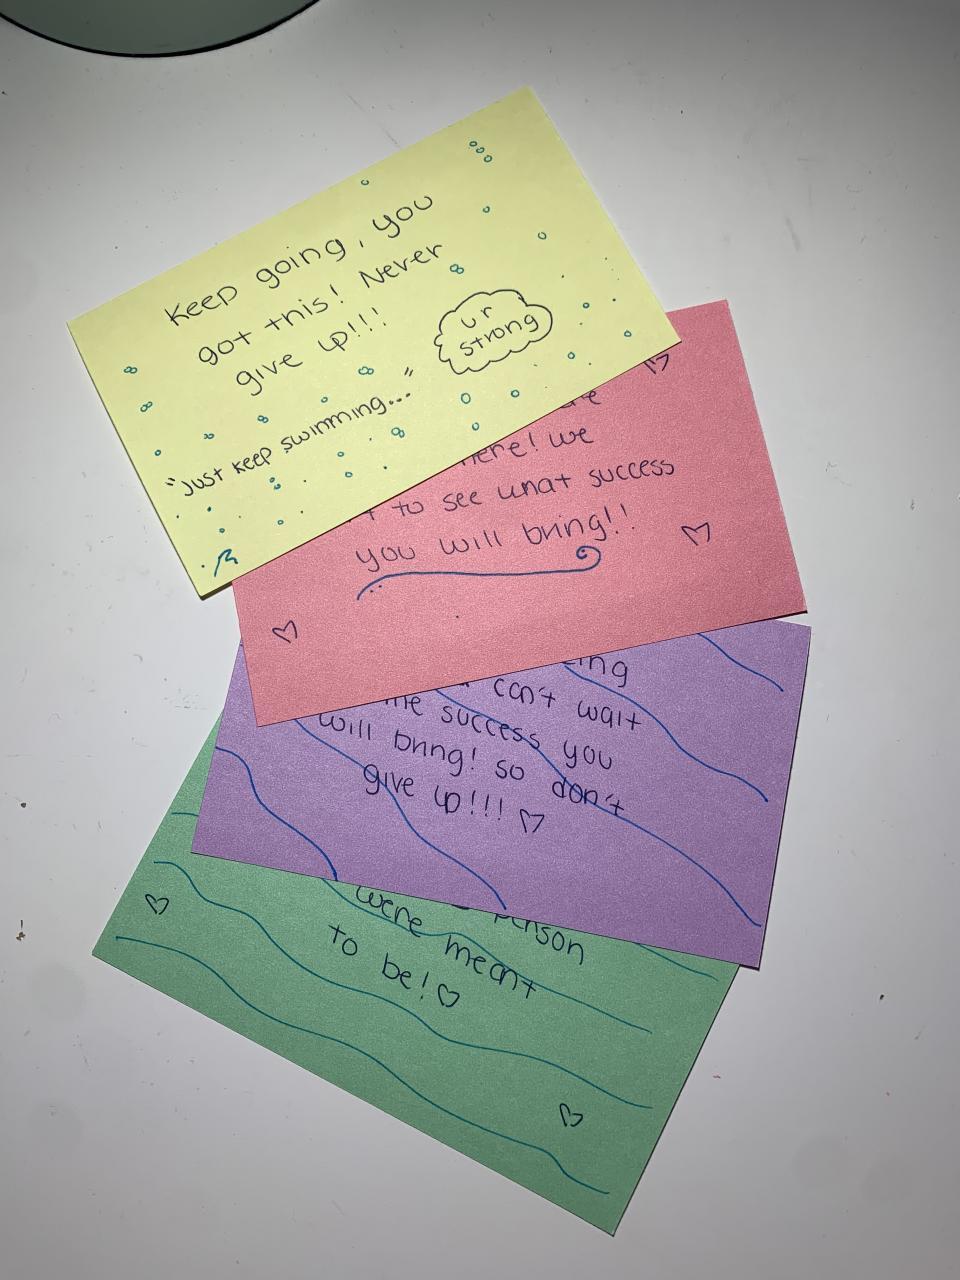 Keep going, you
got this! Never
give up!!!
ur
strong
"Just keep swimming..."
here! we
to see what success
you will bring!!
can't wait
success you
will bring! so don't
give up!!!
were
person
meant
to be!